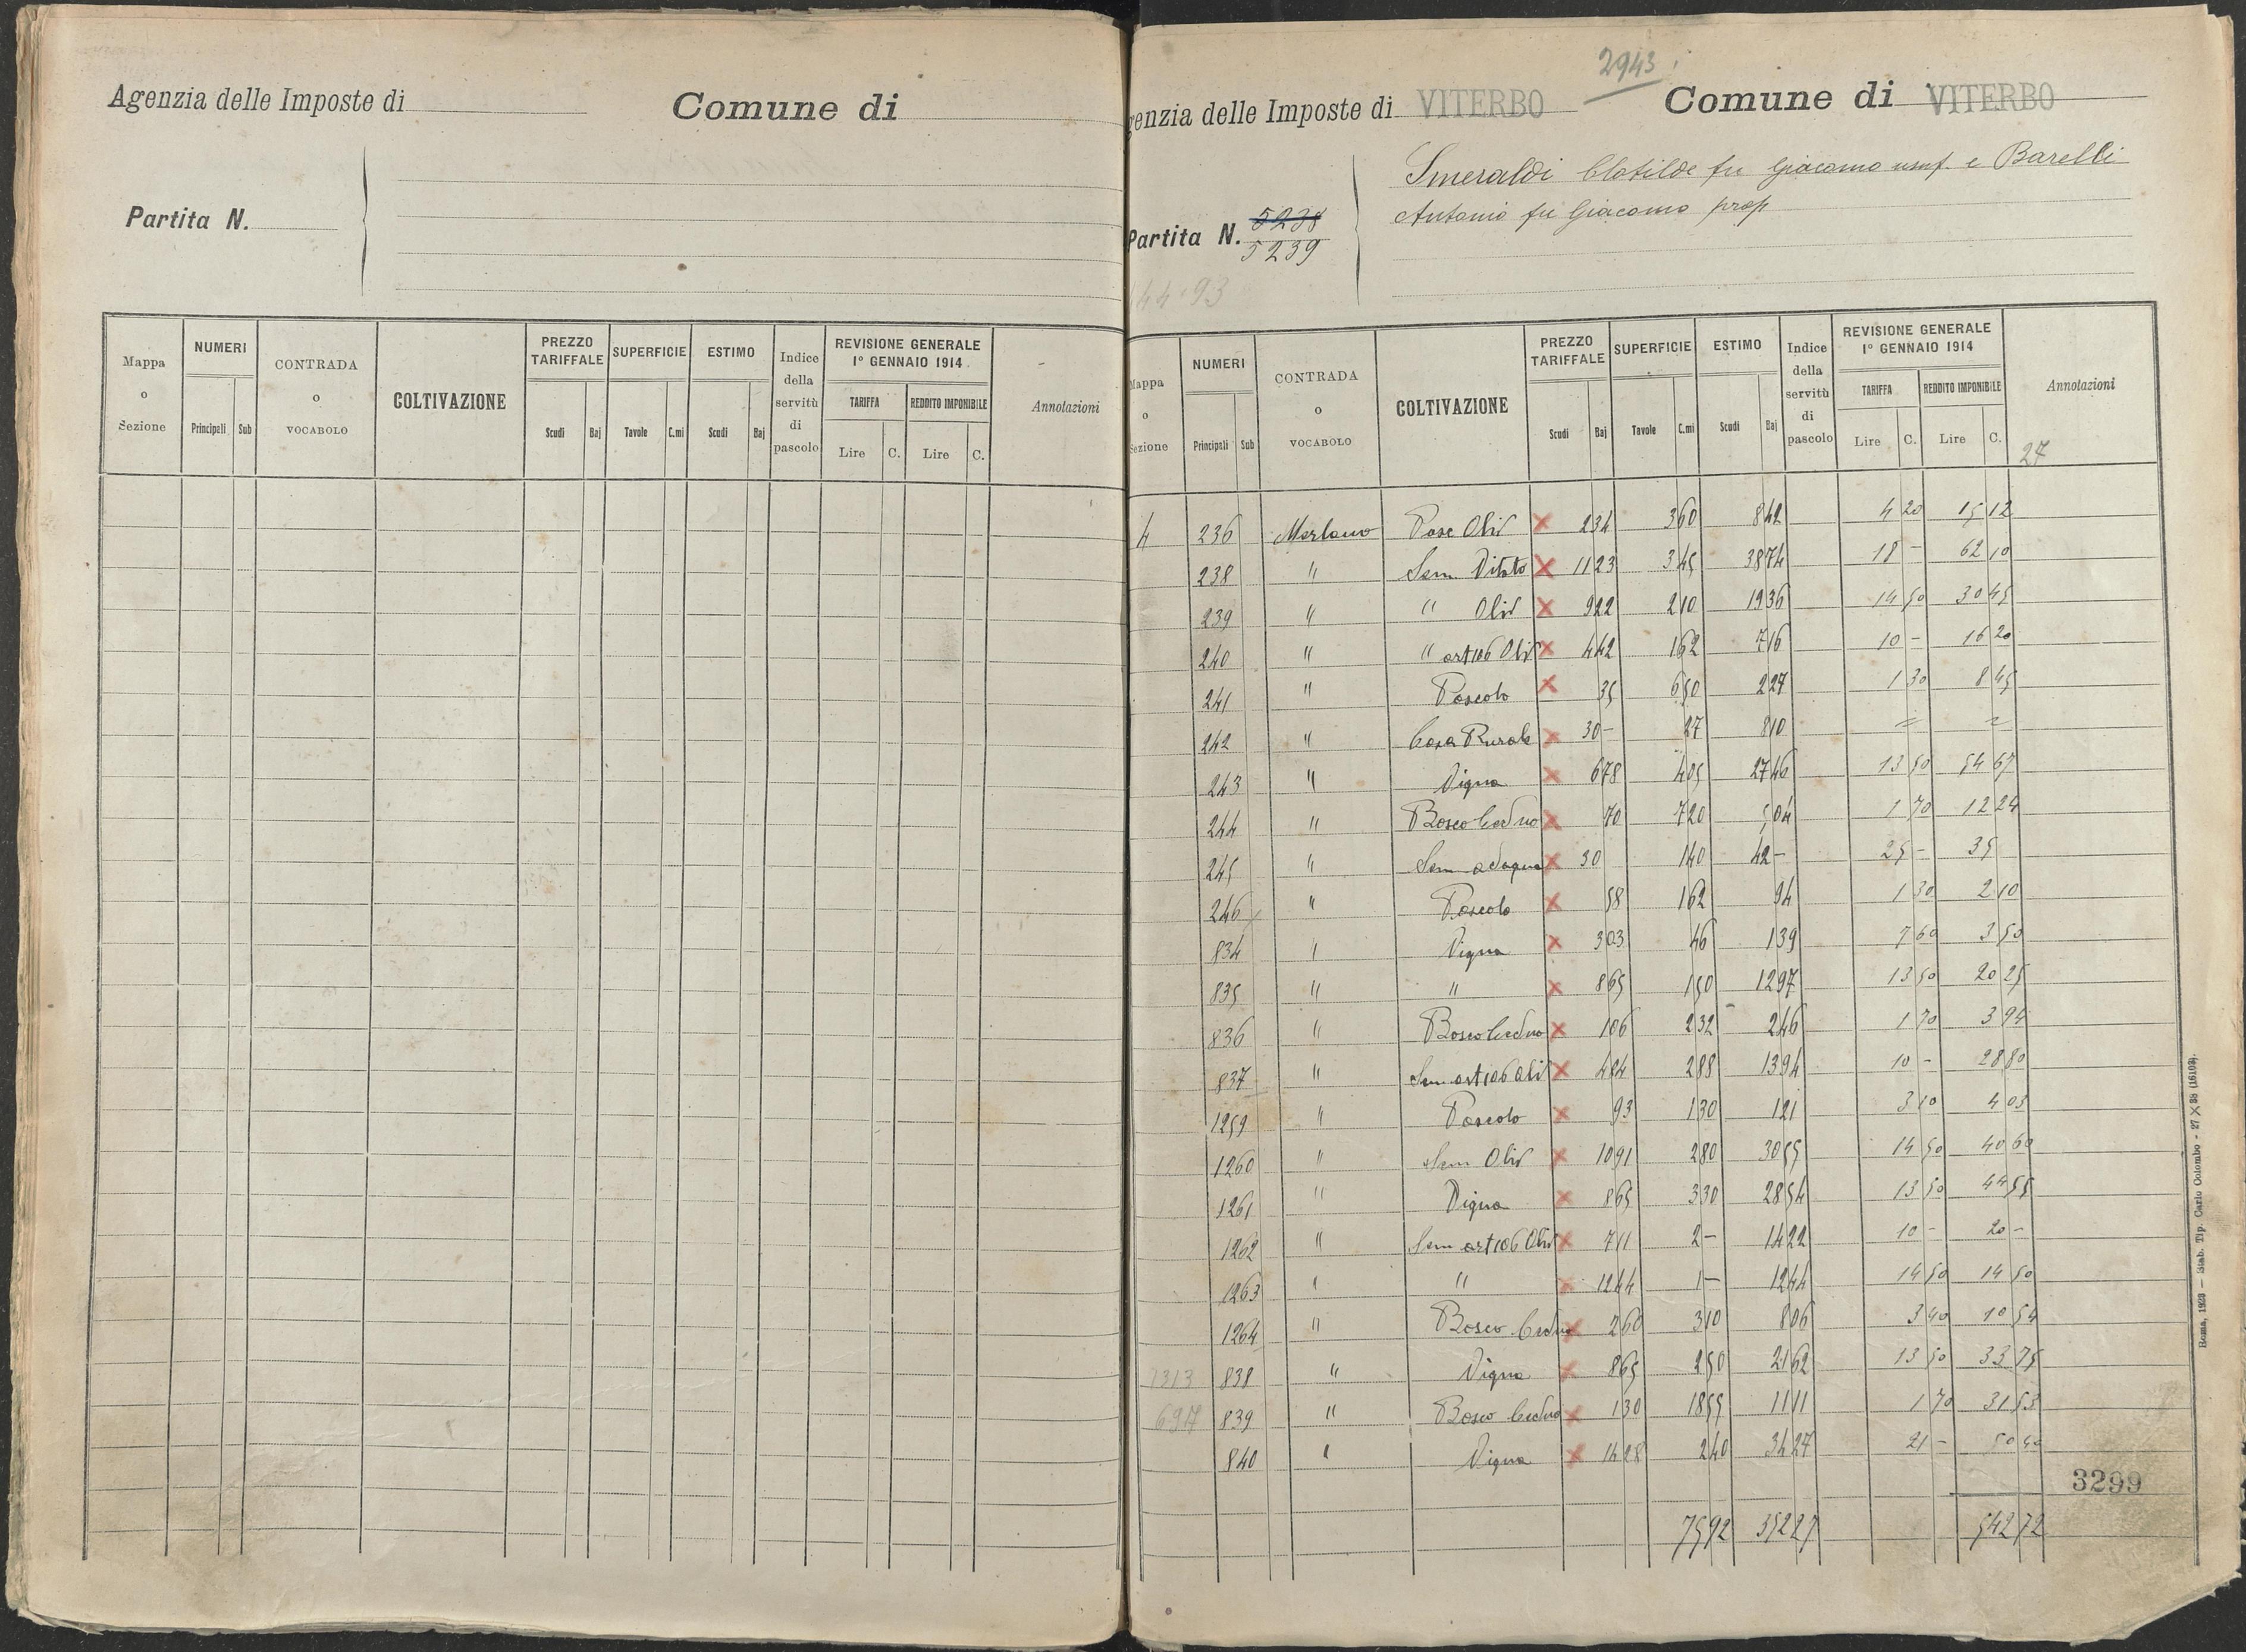 Agenzia delle Imposte di
Comune di
Partita N.
Mappa o Sezione | NUMERI Principali Sub | CONTRADA o VOCABOLO | COLTIVAZIONE | PREZZO TARIFFALE Scudi Baj | SUPERFICIE Tavole C.mi | ESTIMO Scudi Baj | Indice della servitù di pascolo | REVISIONE GENERALE 1° GENNAIO 1914 TARIFFA Lire C. REDDITO IMPONIBILE Lire C. | Annotazioni
2943
genzia delle Imposte di VITERBO Comune di VITERBO
Smeraldi Clotilde fu Giacomo usuf. e Barelli
Antonio fu Giacomo prop
Partita N. 5238
5239
44.93
Mappa o Sezione | NUMERI Principali Sub | CONTRADA o VOCABOLO | COLTIVAZIONE | PREZZO TARIFFALE Scudi Baj | SUPERFICIE Tavole C.mi | ESTIMO Scudi Baj | Indice della servitù di pascolo | REVISIONE GENERALE 1° GENNAIO 1914 TARIFFA Lire C. REDDITO IMPONIBILE Lire C. | Annotazioni
27
4 236 Merlano Pasc Oliv × 2 34 3 60 8 42 4 20 15 12
238 " Sem Vitato × 11 23 3 45 38 74 18 - 62 10
239 " " Oliv × 9 22 2 10 19 36 14 50 30 45
240 " " art 106 Oliv × 4 42 1 62 7 16 10 - 16 20
241 " Pascolo × 35 6 50 2 27 1 30 8 45
242 " Casa Rurale × 30 - 27 8 10 = =
243 " Vigna × 6 78 4 05 27 46 13 50 54 67
244 " Bosco Ceduo × 70 7 20 5 04 1 70 12 24
245 " Sem adacqua × 30 1 40 42 - 25 - 35
246 " Pascolo × 58 1 62 94 1 30 2 10
834 " Vigna × 3 03 46 1 39 7 60 3 50
835 " " × 8 65 1 50 12 97 13 50 20 25
836 " Bosco Ceduo × 1 06 2 32 2 46 1 70 3 94
837 " Sem art 106 Oliv × 4 84 2 88 13 94 10 - 28 80
1259 " Pascolo × 93 1 30 1 21 3 10 4 03
1260 " Sem Oliv × 10 91 2 80 30 55 14 50 40 60
1261 " Vigna × 8 65 3 30 28 54 13 50 44 55
1262 " Sem art 106 Oliv × 7 11 2 - 14 22 10 - 20 -
1263 " " × 12 44 1 - 12 44 14 50 14 50
1264 " Bosco Ceduo × 2 60 3 10 8 06 3 40 10 54
1313 838 " Vigna × 8 65 2 50 21 62 13 50 33 75
697 839 " Bosco Ceduo × 1 30 18 55 11 11 1 70 31 53
840 " Vigna × 14 28 2 40 34 27 21 - 50 40
3299
75 92 352 27 542 72
Roma, 1928 — Istab. Tip. Carlo Colombo - 27 × 38 (16102).